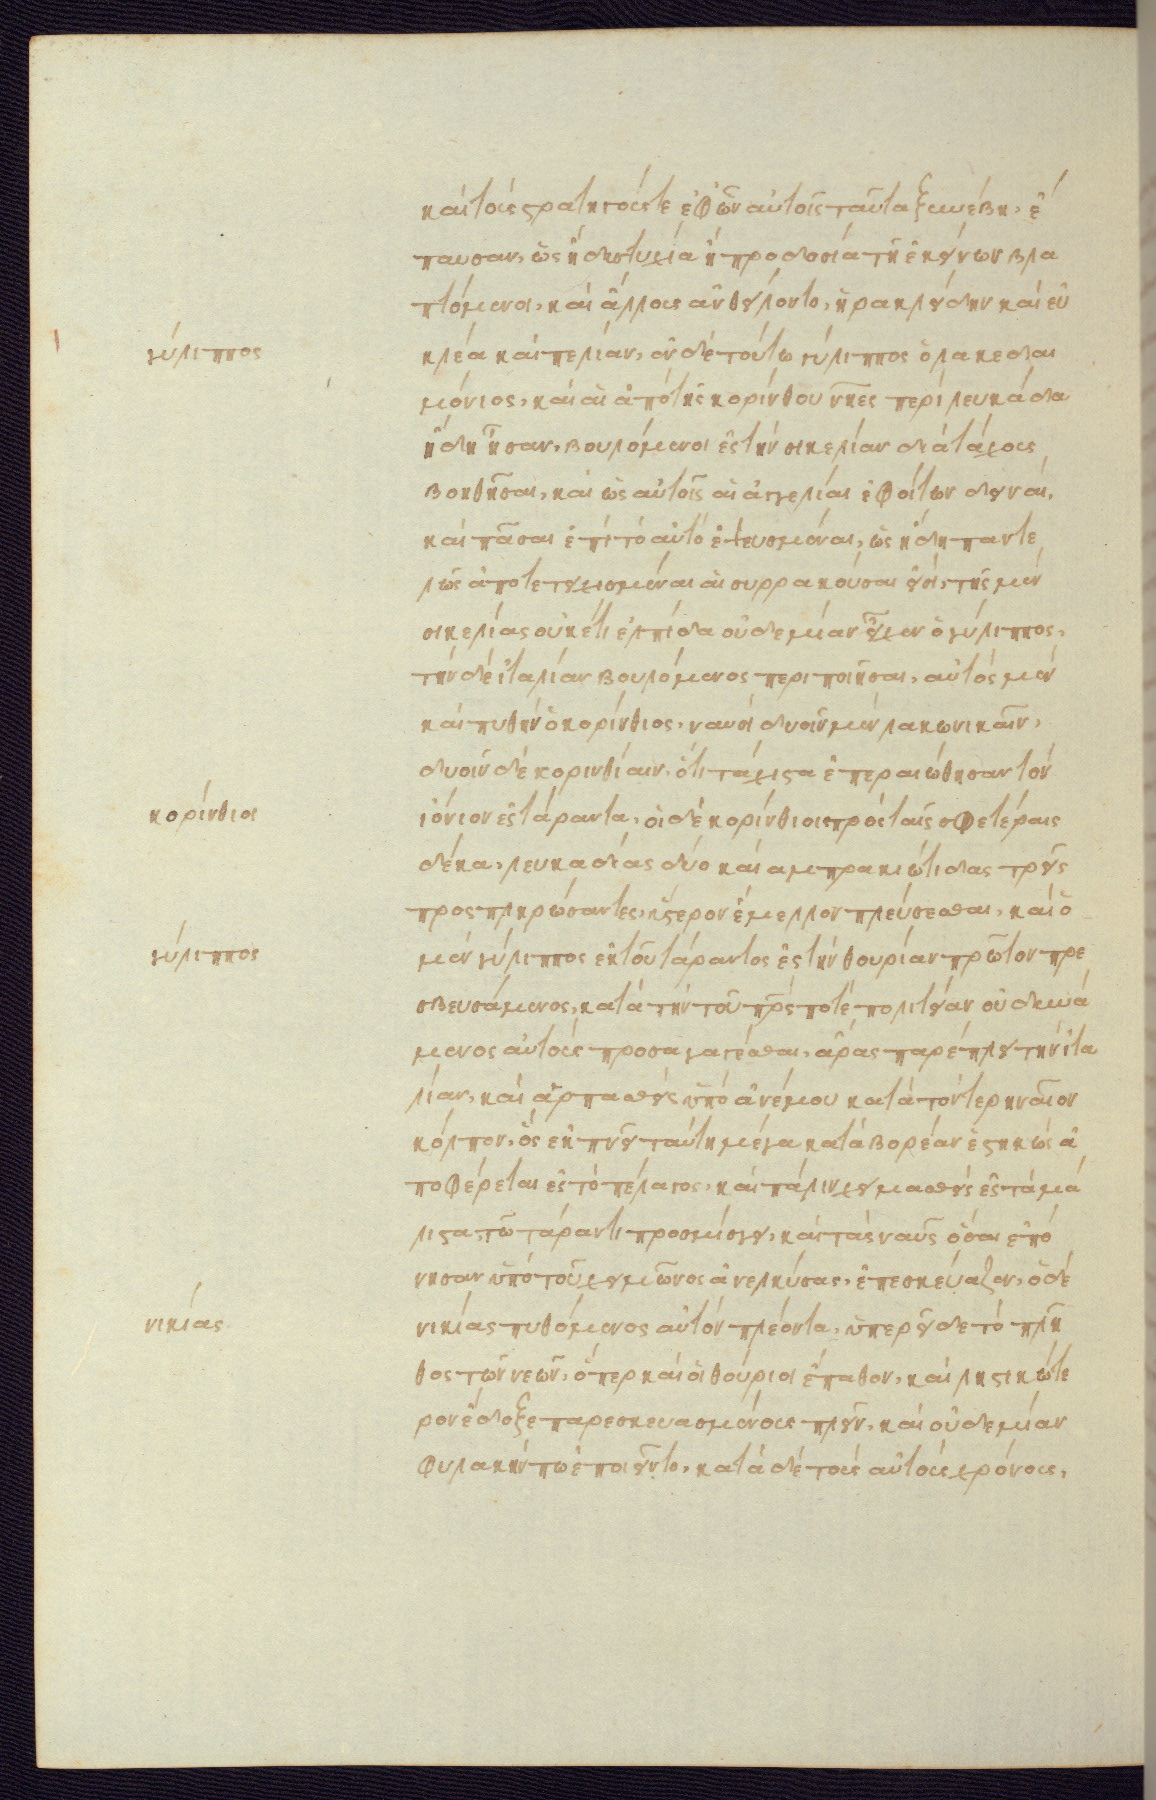 καὶ τοὺς στρατηγούς τε ἐφ' ὧν αὐτοῖς ταῦτα ξυνέβη, ἔ
παυσαν, ὡς ἢ δυστυχία ἢ προδοσία τῇ ἐκείνων βλα
πτόμενοι, καὶ ἄλλους ἀνθείλοντο, ἡρακλείδην καὶ εὐ
γύλιππος
κλέα καὶ τελίαν, ἐν δὲ τούτω γύλιππος ὁ λακεδαι
μόνιος, καὶ αἱ ἀπὸ τῆς κορίνθου νῆες περὶ λευκάδα
ἤδη ἦσαν, βουλόμενοι ἐς τὴν σικελίαν διὰ τάχους
βοηθῆσαι, καὶ ὡς αὐτοῖς αἱ ἀγγελίαι ἐφοίτων δειναὶ,
καὶ πᾶσαι ἐπὶ τὸ αὐτὸ ἐψευσμέναι, ὡς ἤδη παντε
λῶς ἀποτετειχισμέναι αἱ συρρακούσαι εἰσὶ, τῆς μὲν
σικελίας οὐκέτι ἐλπίδα οὐδεμίαν εἶχεν ὁ γύλιππος,
τὴν δὲ ἰταλίαν βουλόμενος περιποιῆσαι, αὐτὸς μὲν
καὶ πυθὴν ὁ κορίνθιος, ναυσὶ δυοῖν μὲν λακωνικαῖν,
δυοῖν δὲ κορινθίαιν, ὅτι τάχιστα ἐπεραιώθησαν τὸν
κορίνθιοι
ἰόνιον ἐς τάραντα, οἱ δὲ κορίνθιοι πρὸς ταῖς σφετέραις
δέκα, λευκαδίας δύο καὶ αμπρακιώτιδας τρεῖς
προσπληρώσαντες, ὕστερον ἔμελλον πλεύσεσθαι, καὶ ὁ
γύλιππος
μὲν γύλιππος ἐκ τοῦ τάραντος ἐς τὴν θουρίαν πρῶτον πρε
σβευσάμενος, κατὰ τὴν τοῦ πρς ποτὲ πολιτείαν οὐ δυνά
μενος αὐτοὺς προσαγαγέσθαι, ἄρας παρέπλει τὴν ἰτα
λίαν, καὶ ἁρπασθεὶς ὑπὸ ἀνέμου κατὰ τὸν τερηναῖον
κόλπον, ὃς ἐκπνεῖ ταύτη μέγα κατὰ βορέαν ἑστηκὼς ἀ
ποφέρεται ἐς τὸ πέλαγος, καὶ πάλιν χειμασθεὶς ἐς τὰ μά
λιστα, τῶ τάραντι προσμίσγει, καὶ τὰς ναῦς ὅσαι ἐπό
νησαν ὑπὸ τοῦ χειμῶνος ἀνελκύσας, ἐπεσκεύαζεν, ὁ δὲ
νικίας
νικίας πυθόμενος αὐτὸν πλέοντα, ὑπερεῖδε τὸ πλῆ
θος τῶν νεῶν, ὅπερ καὶ οἱ θούριοι ἔπαθον, καὶ ληστικώτε
ρον ἔδοξε παρεσκευασμένους πλεῖν, καὶ οὐδεμίαν
φυλακὴν πω ἐποιεῖτο, κατὰ δὲ τοὺς αὐτοὺς χρόνους,